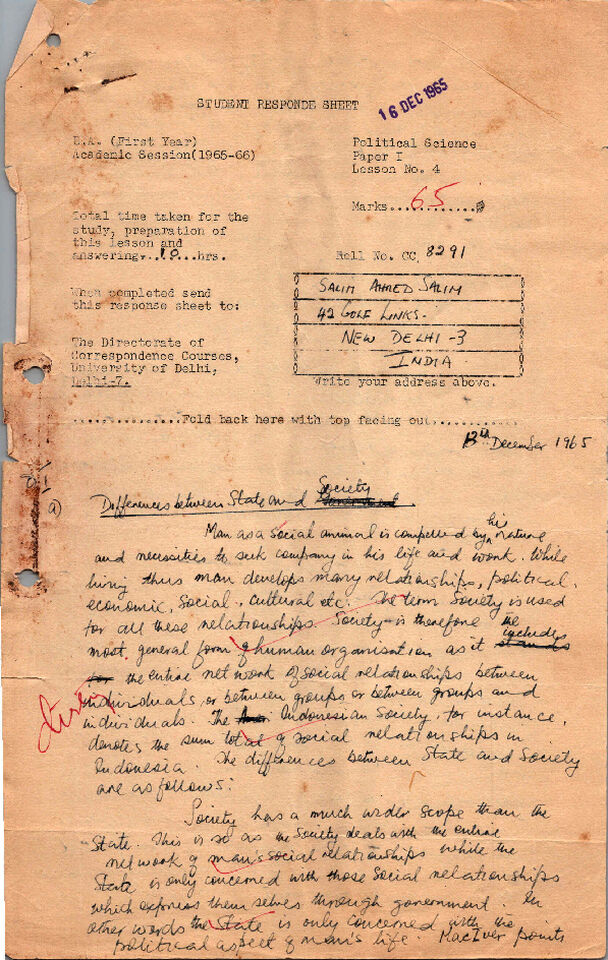 16 DEC 1965
STUDENT RESPONDE SHEET
B.A. (First Year)
Academic Session(1965-66)
Political Science
Paper I
Lesson No. 4
Marks....65........
Total time taken for the
study, preparation of
this lesson and
answering...10...hrs.
Roll No. CC 8291
When completed send
this response sheet to:
SALIM AHMED SALIM
42 GOLF LINKS.
NEW DELHI-3
INDIA
The Directorate of
Correspondence Courses,
University of Delhi,
Delhi-7.
Write your address above.
..............Fold back here with top facing out............
13th December 1965
a)
Differences between State and Society
Man as a social animal is compelled by his nature
and necessities to seek company in his life and work. While
living thus man develops many relationships, political,
economic, social, cultural etc. The term Society is used
for all these relationships. Society is therefore the
most general form of human organisation as it includes
the entire net work of social relationships between
individuals, or between groups or between groups and
individuals. The Indonesian Society, for instance,
denotes the sum total of social relationships in
Indonesia. The differences between State and Society
are as follows:
Society has a much wider scope than the
State. This is so as the Society deals with the entire
net work of man's social relationships while the
State is only concerned with those social relationships
which express themselves through government. In
other words the State is only concerned with the
political aspect of man's life. MacIver points